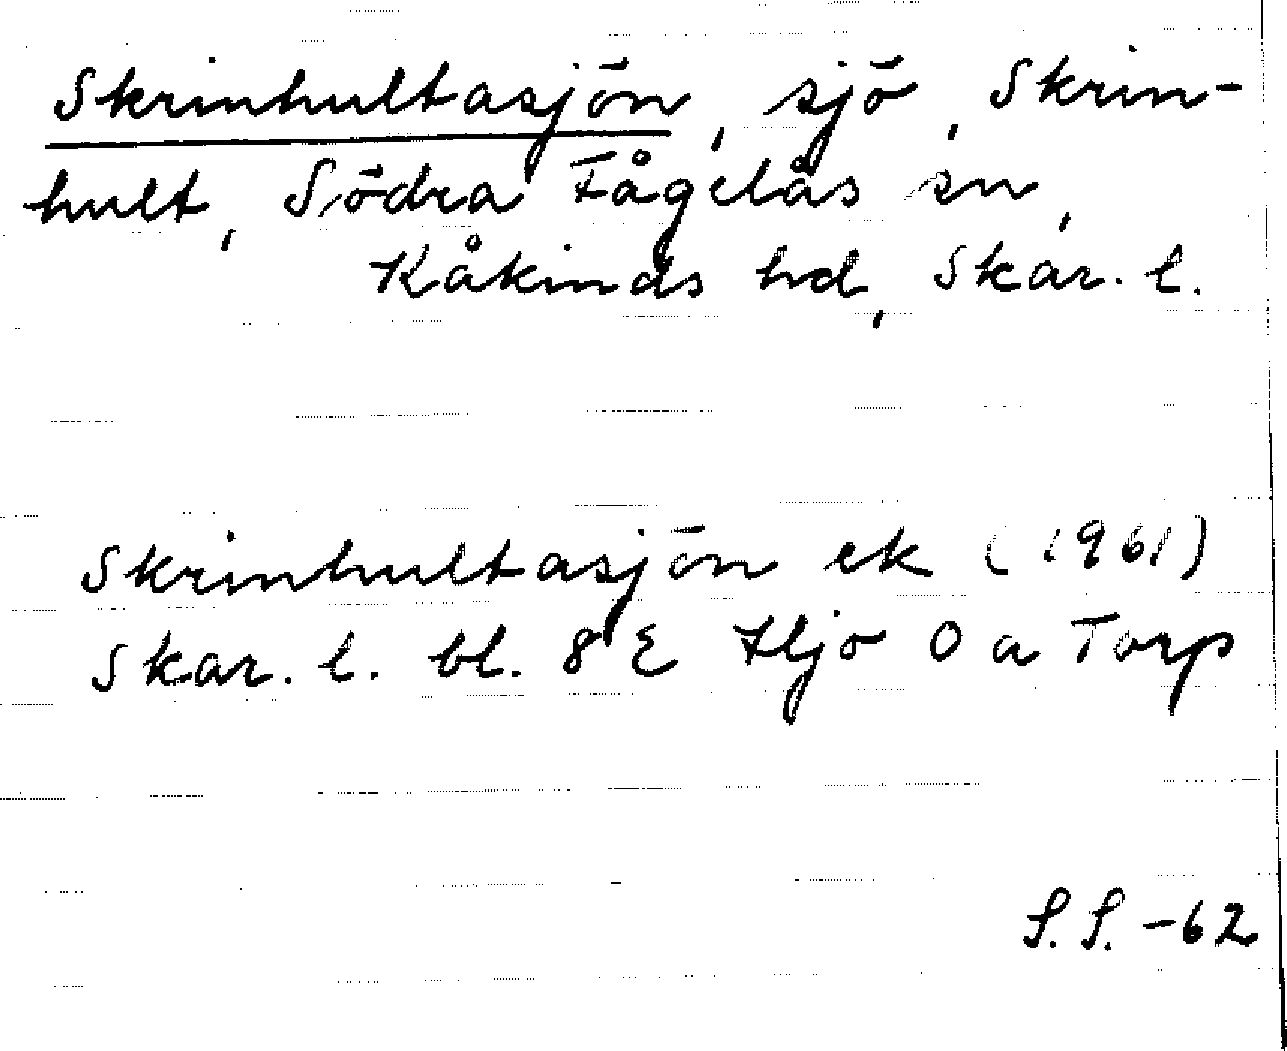 Skrinhultasjön, sjö, Skrin-
hult, Södra Fågelås sn,
Kåkinds hd, Skar. l.
Skrinhultasjön ek (1961)
Skar. l. bl. 8 E Hjo 0 a Torp
S. S. -62